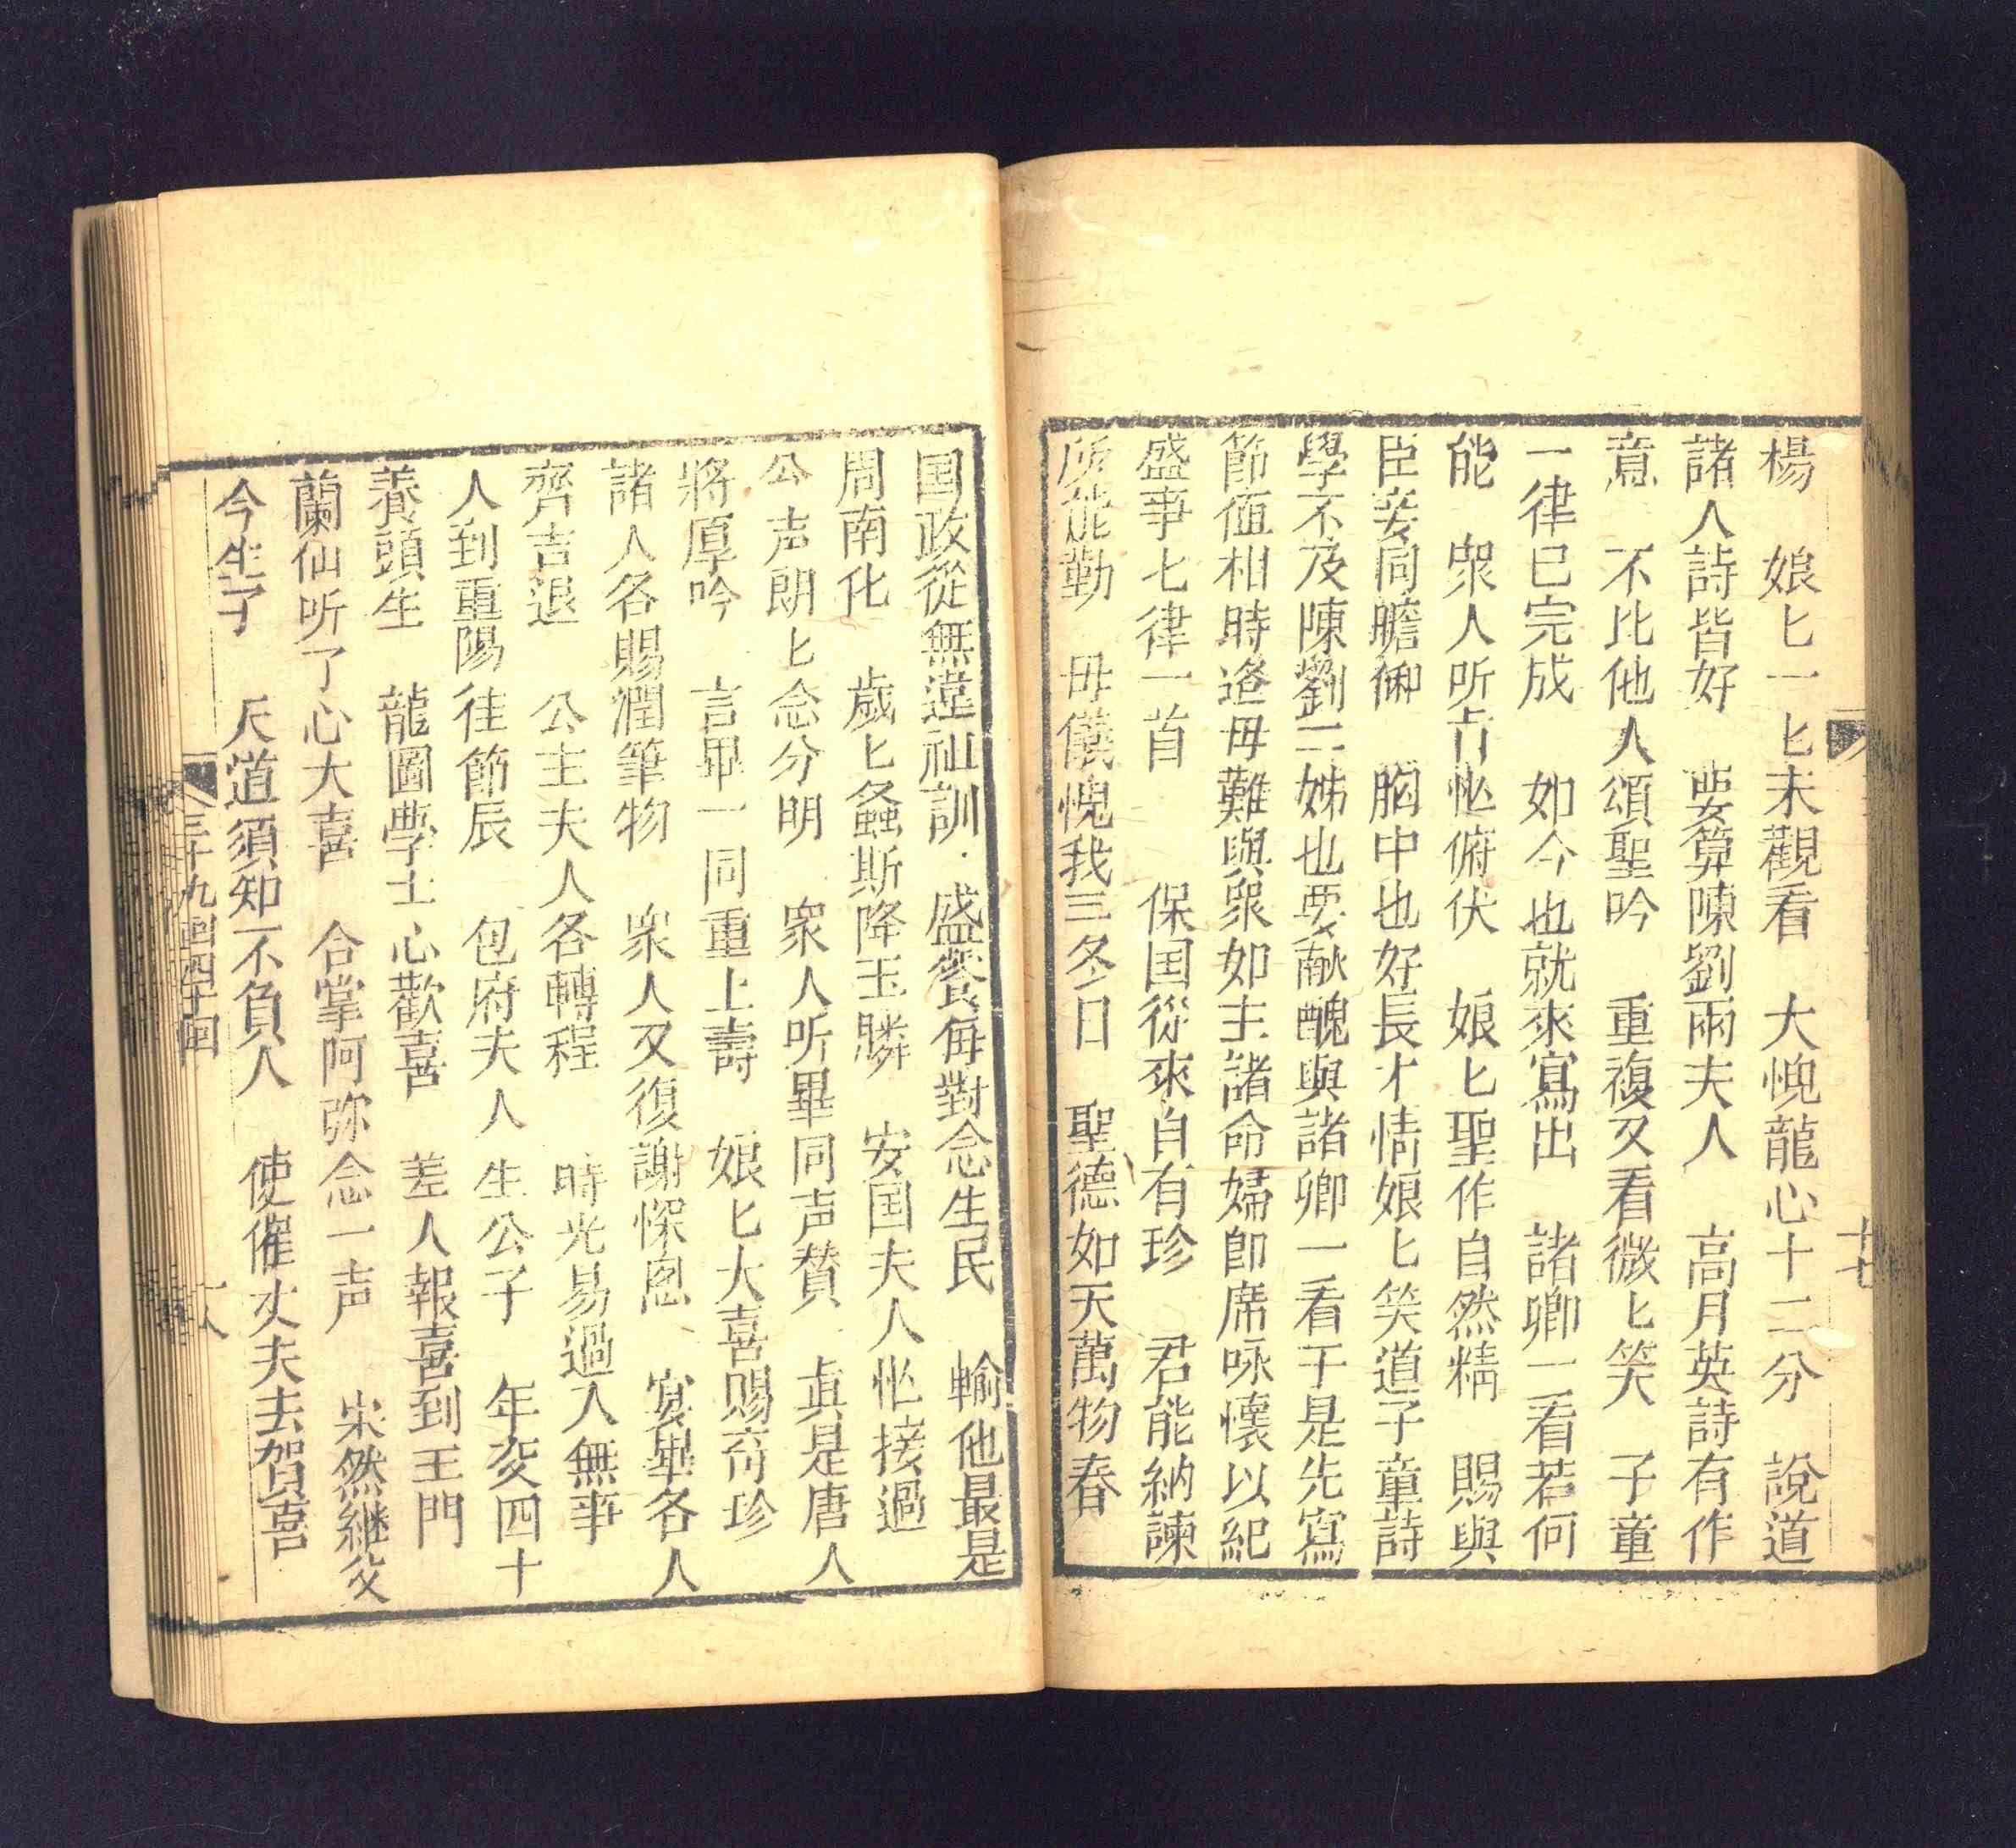 楊　娘匕一匕未觀看　大悅龍心十二分　說道
諸人詩皆好　要算陳劉兩夫人　高月英詩有作
意　不比他人頌聖吟　重複又看微匕笑　子童
一律已完成　如今也就來寫出　諸卿一看若何
能　眾人听旨忙俯伏　娘匕聖作自然精　賜與
臣妾同瞻仰　胸中也好長才情娘匕笑道子童詩
學不及陳劉二姊也要献醜與諸卿一看于是先寫
節值相時逢毋難與眾如主諸命婦即席咏懷以紀
盛事七律一首　保国從來自有珍　君能納諫
所能勤　毋儀愧我三冬日　聖德如天萬物春
十七
国政從無違祖訓　盛餐每對念生民　輸他最是
周南化　歲匕螽斯降玉麟　安国夫人忙接過
公声朗匕念分明　眾人听畢同声賛　真是唐人
將厚吟　言畢一同重上壽　娘匕大喜賜奇珍
諸人各賜潤筆物　眾人又復謝深恩　宴畢各人
齊吉退　公主夫人各轉程　時光易過入無事
人到重陽佳節辰　包府夫人生公子　年交四十
養頭生　龍圖學士心歡喜　差人報喜到王門
蘭仙听了心大喜　合掌阿弥念一声　果然継父
今生子　天道須知不負人　使催丈夫去賀喜
三十九回四十回　十八